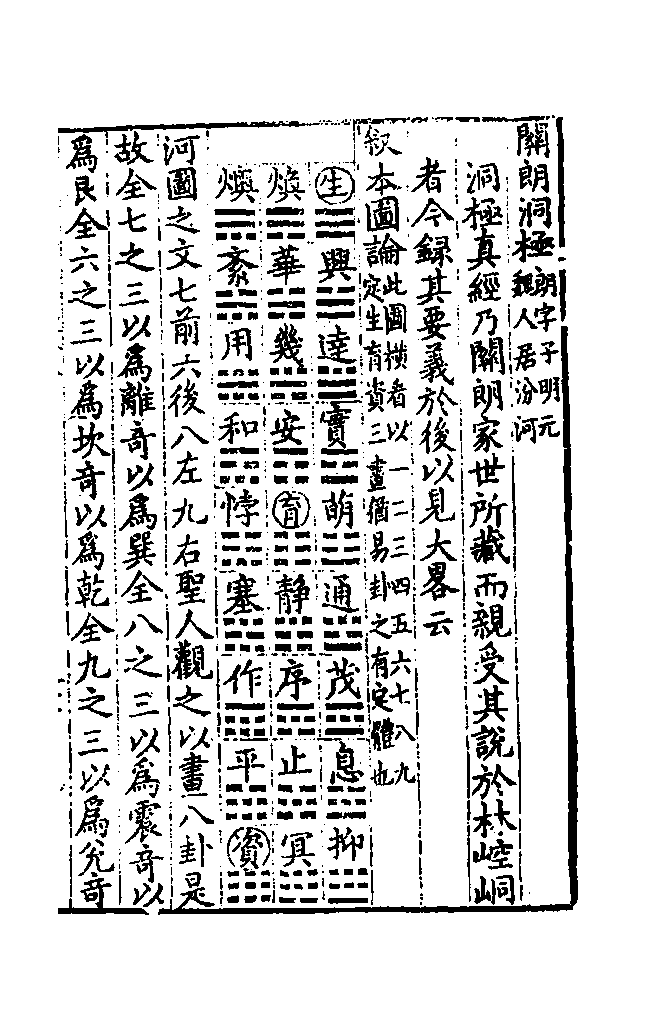 關朗洞極朗字子明元
魏人居汾河
洞極真經乃關朗家世所藏而親受其說於林崆峒
者今録其要義於後以見大畧云
叙本圖論此圖横者以一二三四五六七八九
定生育資三畫猶易卦之有定體也
生 興 達 實 萌 通 茂 息 抑
焕 華 幾 安 育 静 序 止 冥
燠 紊 用 和 悖 塞 作 平 資
河圖之文七前六後八左九右聖人觀之以畫八卦是
故全七之三以為離奇以為巽全八之三以為震奇以
為艮全六之三以為坎奇以為乾全九之三以為兊奇